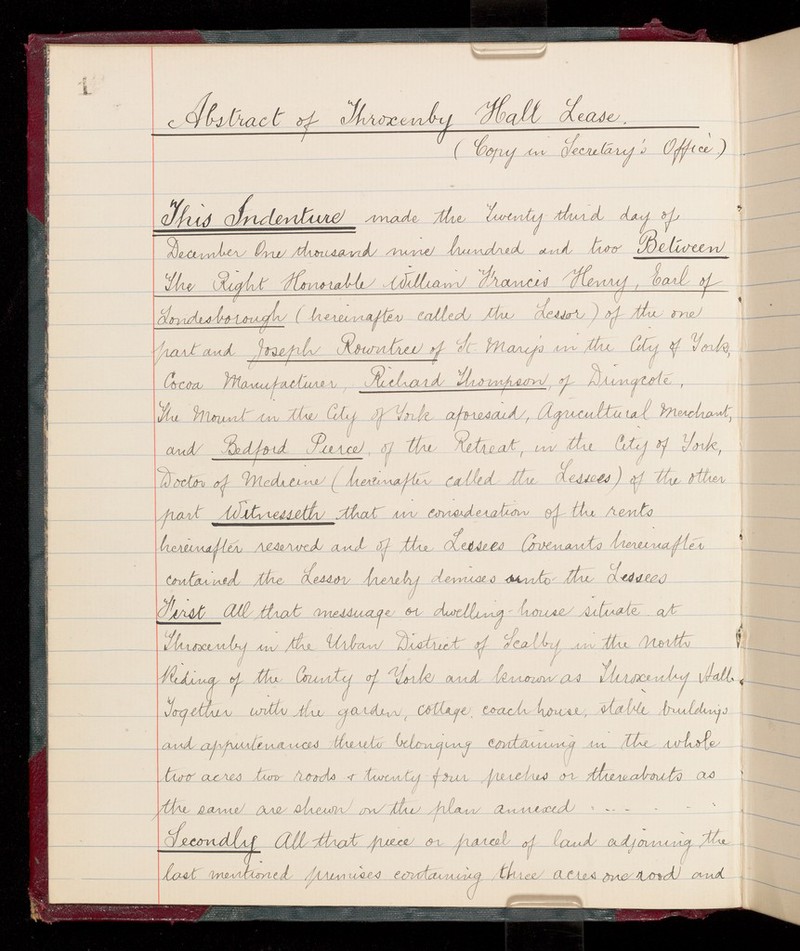 1
Abstract of Throxenby Hall Lease.
(Copy in Secretary's Office)
This Indenture made the Twenty third day of
December One thousand nine hundred and two Between
The Right Honorable William Francis Henry, Earl of
Londesborough (hereinafter called the Lessor) of the one
part and Joseph Rowntree of St Mary's in the City of York,
Cocoa Manufacturer, Richard Thompson, of Dringcote,
The Mount in the City of York aforesaid, Agricultural Merchant,
and Bedford Pierce, of the Retreat, in the City of York,
Doctor of Medicine (hereinafter called the Lessees) of the other
part Witnesseth that in consideration of the rents
hereinafter reserved and of the Lessees Covenants hereinafter
contained the Lessor hereby demises unto the Lessees
First All that messuage or dwelling-house situate at
Throxenby in the Urban District of Scalby in the North
Riding of the County of York and known as Throxenby Hall
Together with the garden, cottage, coach house, stable buildings
and appurtenances thereto belonging containing in the whole
two acres two roods & twenty four perches or thereabouts as
the same are shewn on the plan annexed . . . . . .
Secondly All that piece or parcel of land adjoining the
last mentioned premises containing three acres one rood and